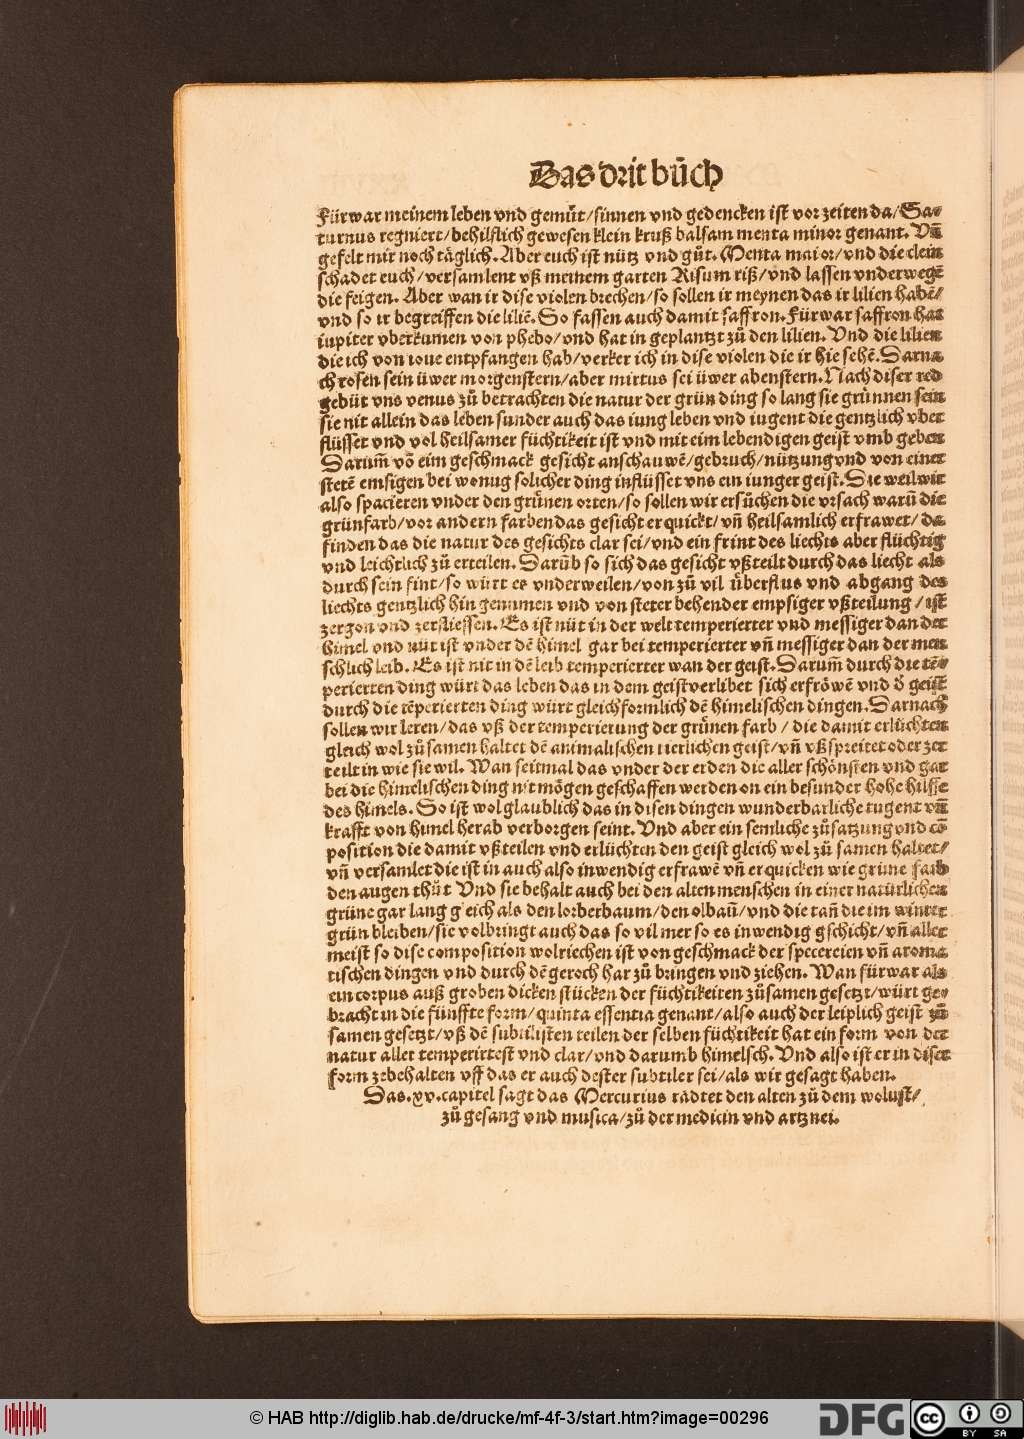 Das drit bůch
Fürwar meinem leben vnd gemüt/sinnen vnd gedencken ist vor zeiten da/Sa⸗
turnus regniert/behilflich gewesen klein kruß balsam menta minor genant. Vñ
gefelt mir noch täglich. Aber euch ist nütz vnd gůt. Menta maior/vnd die clein
schadet euch/versamlent vß meinem garten Risum riß/vnd lassen vnderwegē
die feigen. Aber wan ir dise violen brechen/so sollen ir meynen das ir lilien habē/
vnd so ir begreiffen die liliē. So fassen auch damit saffron. Fürwar saffron hat
iupiter vberkumen von phebo/vnd hat in geplantzt zů den lilien. Vnd die lilien
die ich von ioue entpfangen hab/verker ich in dise violen die ir hie sehē. Darna
ch rosen sein üwer morgenstern/aber mirtus sei üwer abenstern. Nach diser red
gebüt vns venus zů betrachten die natur der grün ding so lang sie grünnen sein
sie nit allein das leben sunder auch das iung leben vnd iugent die gentzlich vber
flüsset vnd vol heilsamer füchtikeit ist vnd mit eim lebendigen geist vmb geben
Darum̄ vō eim geschmack gesicht anschauwē/gebruch/nützung vnd von einer
stetē emsigen bei wonug solicher ding inflüsset vns ein iunger geist. Die weil wir
also spacieren vnder den grünen orten/so sollen wir ersůchen die vrsach warū die
grünfarb/vor andern farben das gesicht erquickt/vñ heilsamlich erfrawet/da
finden das die natur des gesichts clar sei/vnd ein frint des liechts aber flüchtig
vnd leichtlich zů erteilen. Darūb so sich das gesicht vßteilt durch das liecht als
durch sein fint/so würt es vnderweilen/von zů vil überflus vnd abgang des
liechts gentzlich hin genumen vnd von steter behender empsiger vßteilung/ist
zergon vnd zerfliessen. Es ist nüt in der welt temperierter vnd messiger dan der
himel vnd nüt ist vnder dē himel gar bei temperierter vñ messiger dan der men
schlich leib. Es ist nit in dē leib temperierter wan der geist. Darum̄ durch die tē⸗
perierten ding würt das leben das in dem geist verlibet sich erfröwē vnd d̄ geist
durch die tēperierten ding würt gleichformlich dē himelischen dingen. Darnach
sollen wir leren/das vß der temperierung der grünen farb/die damit erlüchten
gleich wol zůsamen haltet dē animalischen tierlichen geist/vñ vßspreitet oder zer
teilt in wie sie wil. Wan seitmal das vnder der erden die aller schönsten vnd gar
bei die himelischen ding nit mögen geschaffen werden on ein besunder hohe hilffe
des himels. So ist wol glaublich das in disen dingen wunderbarliche tugent vñ
krafft von himel herab verborgen seint. Vnd aber ein semliche zůsatzung vnd cō
position die damit vßteilen vnd erlüchten den geist gleich wol zů samen haltet/
vñ versamlet die ist in auch also inwendig erfrawē vñ erquicken wie grüne farb
den augen thůt Vnd sie behalt auch bei den alten menschen in einer natürlichen
grüne gar lang gleich als den lorberbaum/den olbaū/vnd die tañ die im winter
grün bleiben/sie volbringt auch das so vil mer so es inwendig gschicht/vñ aller
meist so dise composition wolriechen ist von geschmack der specereien vñ aroma
tischen dingen vnd durch dē geroch har zů bringen vnd ziehen. Wan fürwar als
ein corpus auß groben dicken stücken der füchtikeiten zůsamen gesetzt/würt ge⸗
bracht in die fünffte form/quinta essentia genant/also auch der leiplich geist zů
samen gesetzt/vß dē subtilisten teilen der selben füchtikeit hat ein form von der
natur aller temperirtest vnd clar/vnd darumb himelsch. Vnd also ist er in diser
form zebehalten vff das er auch dester subtiler sei/als wir gesagt haben.
Das.xv.capitel sagt das Mercurius radtet den alten zů dem wolust/
zů gesang vnd musica/zů der medicin vnd artznei.
© HAB http://diglib.hab.de/drucke/mf-4f-3/start.htm?image=00296
DFG
cc BY SA